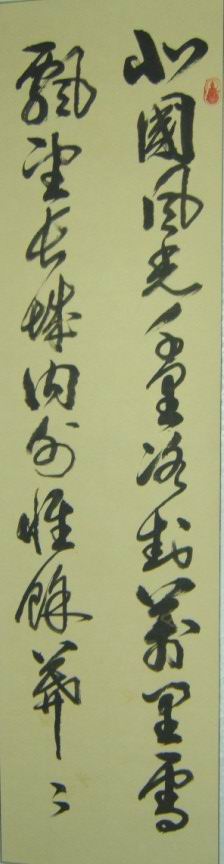 北國風光千里冰封萬里雪
飄望長城内外惟餘莽〻